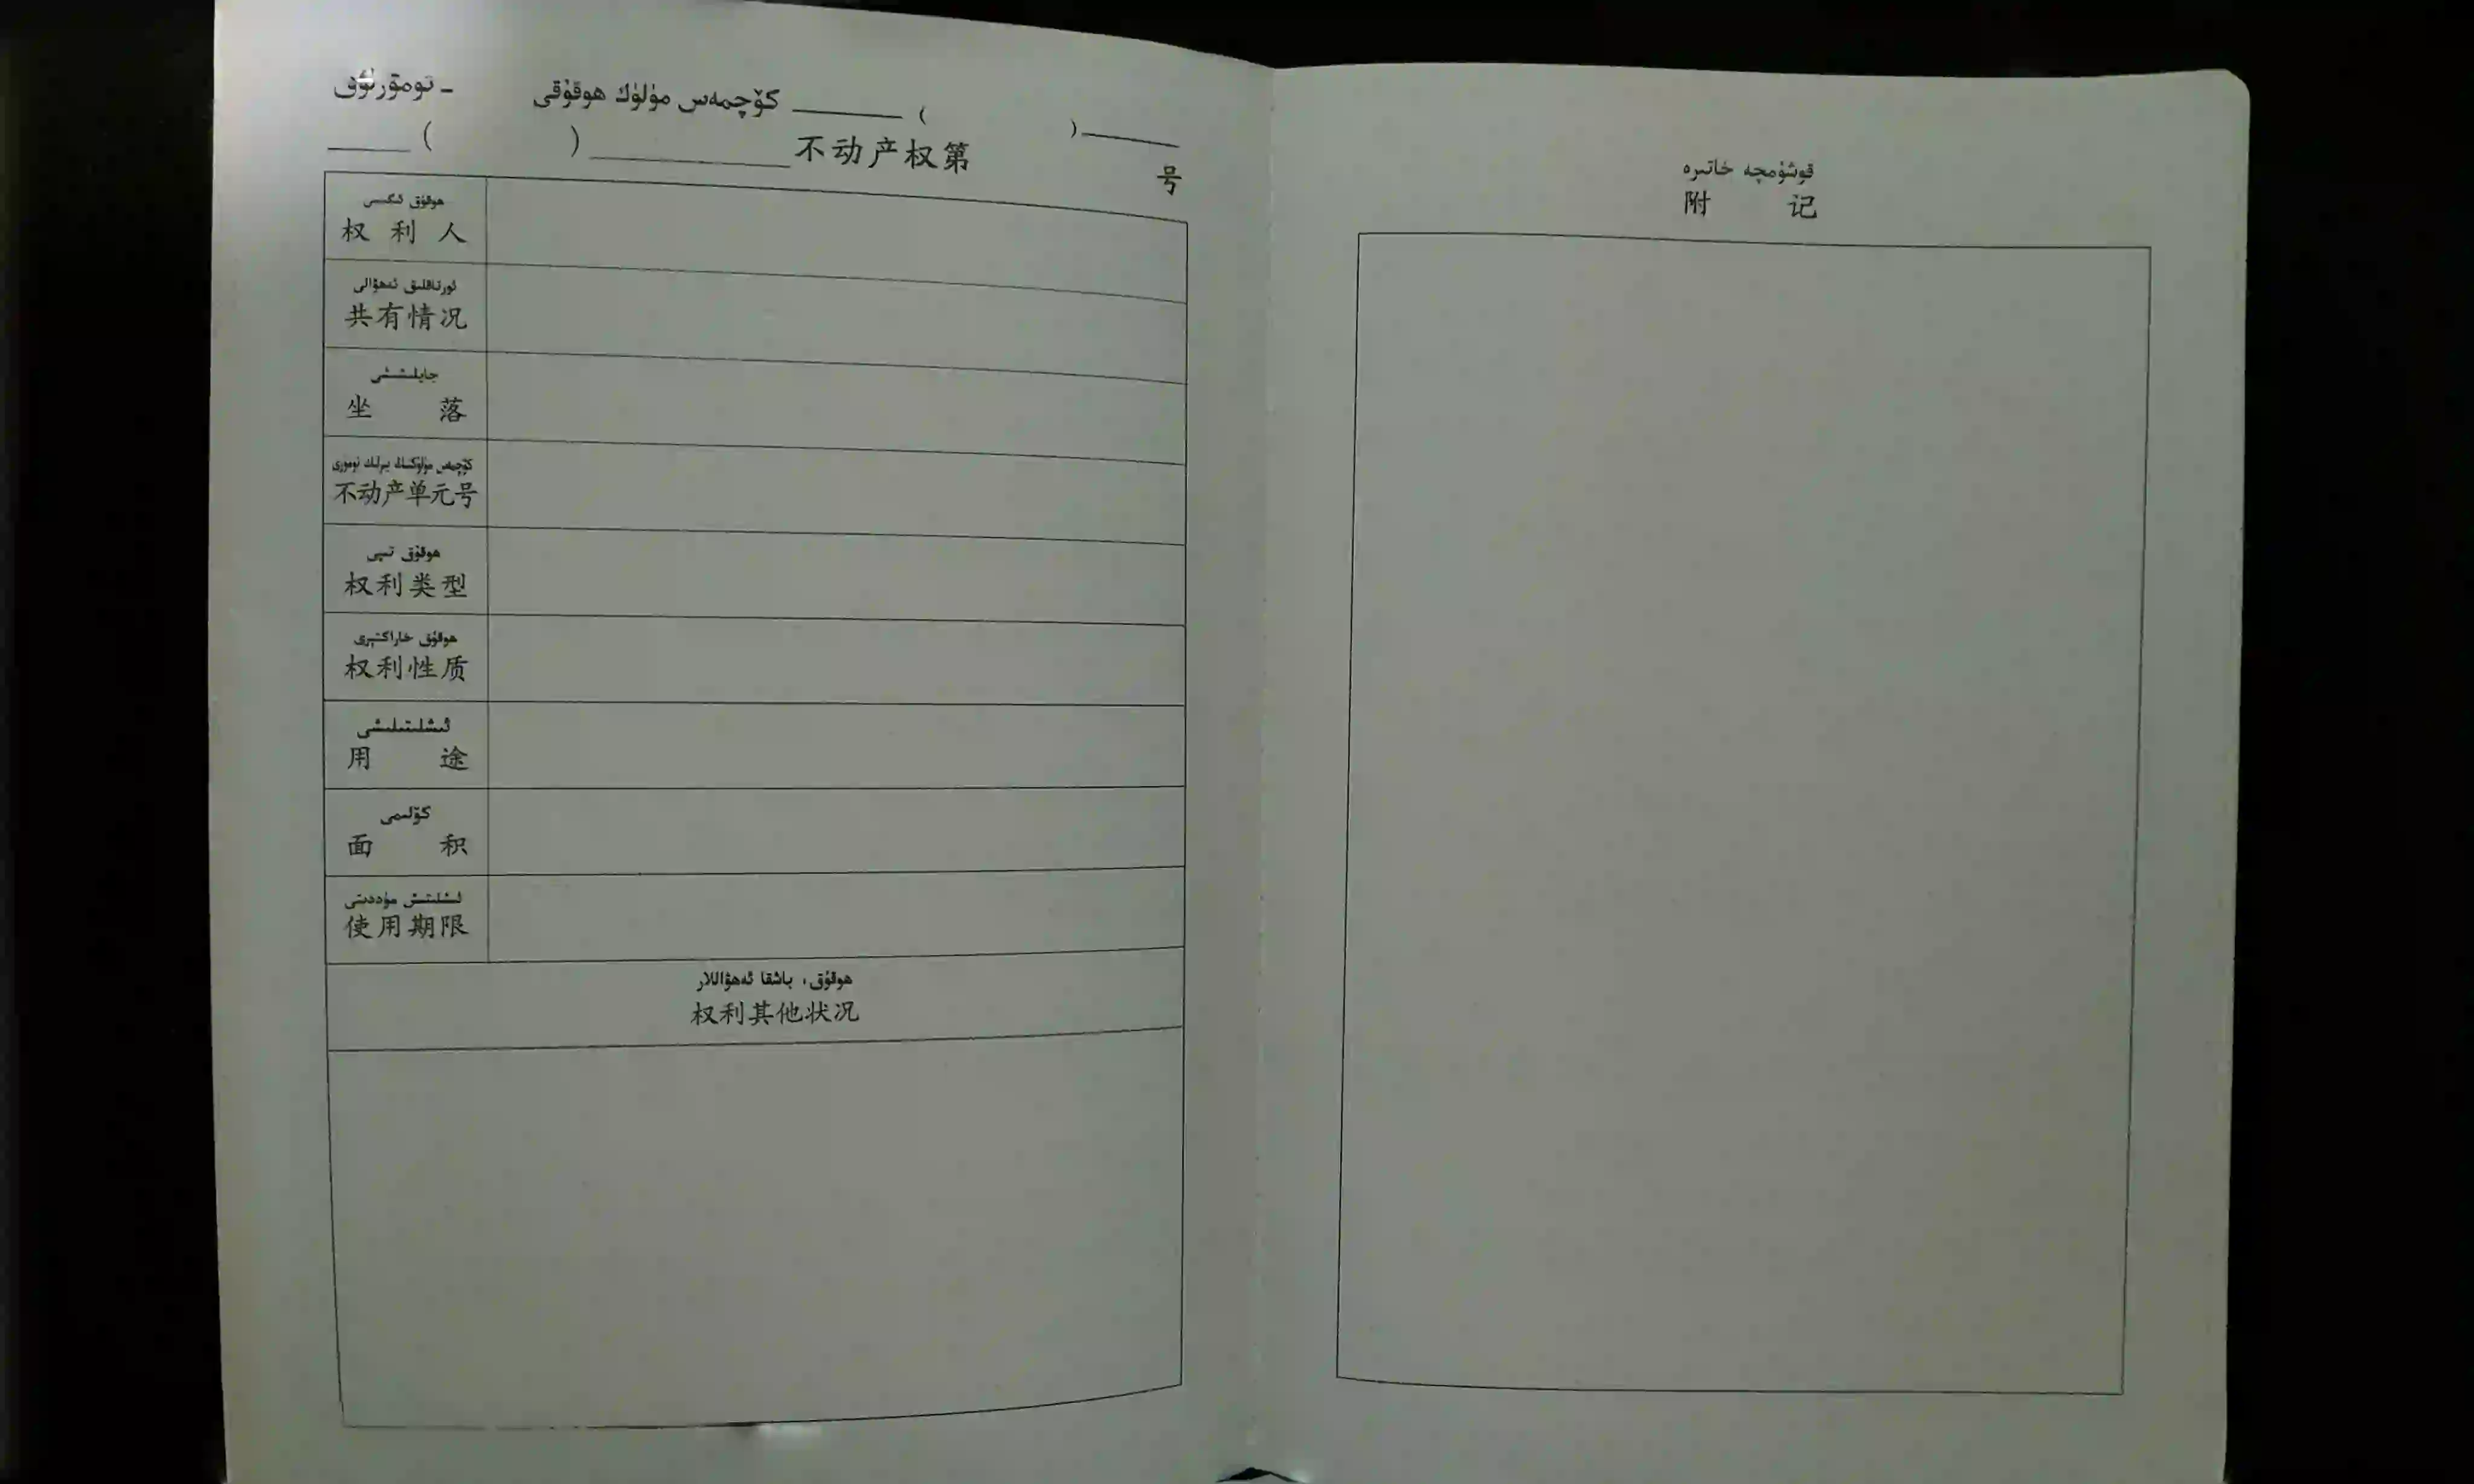 _____( )_____ كۆچمەس مۈلۈك ھوقۇقى - نومۇرلۇق
_____( )_____不动产权第 号
ھوقۇق ئىگىسى
权利人
ئورتاقلىق ئەھۋالى
共有情况
جايلىشىشى
坐落
كۆچمەس مۈلۈكنىڭ بىرلىك نومۇرى
不动产单元号
ھوقۇق تىپى
权利类型
ھوقۇق خاراكتېرى
权利性质
ئىشلىتىلىشى
用途
كۆلىمى
面积
ئىشلىتىش مۇددىتى
使用期限
ھوقۇق، باشقا ئەھۋاللار
权利其他状况
قوشۇمچە خاتىرە
附记